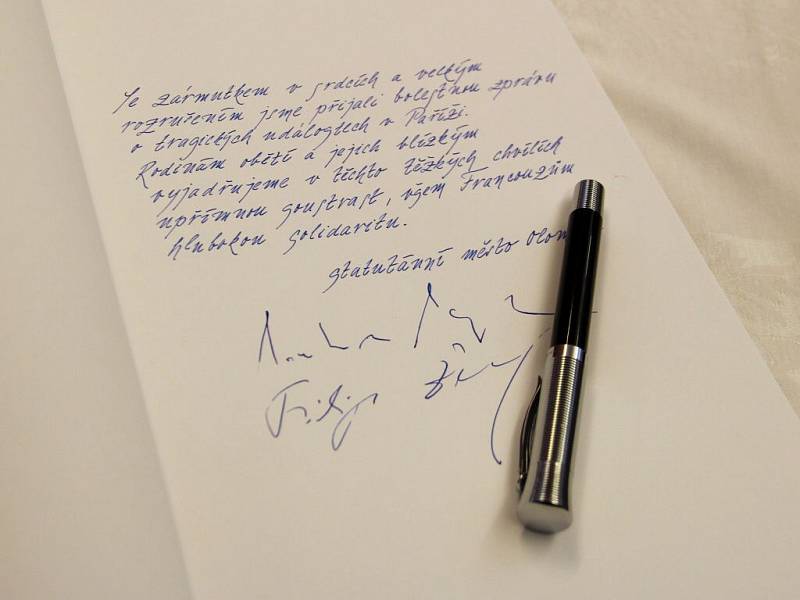 Se zármutkem v srdcích a velkým
rozrušením jsme přijali bolestnou zprávu
o tragických událostech v Paříži.
Rodinám obětí a jejich blízkým
vyjadřujeme v těchto těžkých chvílích
upřímnou soustrast, všem Francouzům
hlubokou solidaritu.
statutární město Olom
Filip